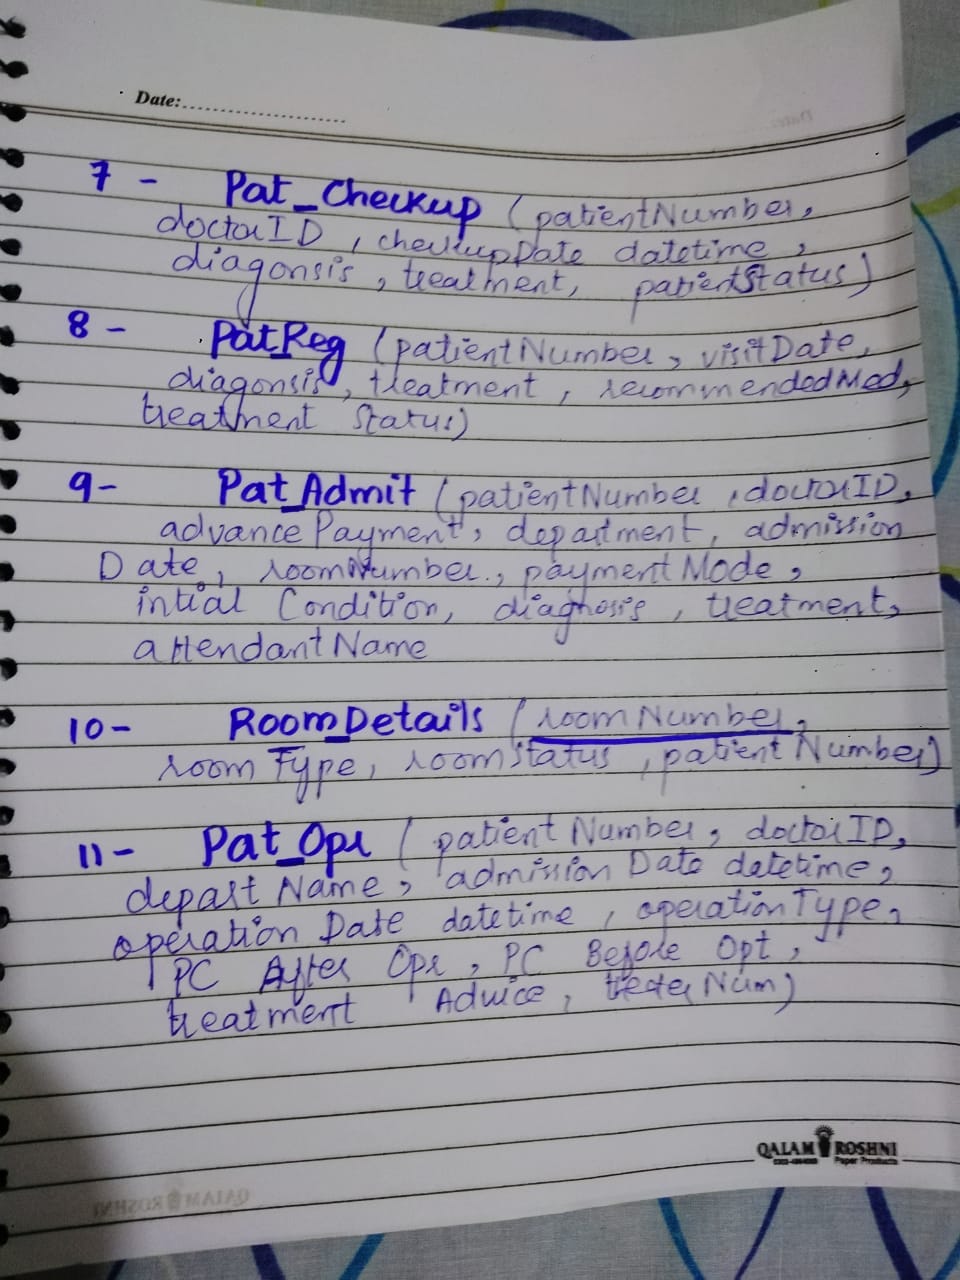 Date:....................
7 - Pat_Checkup (patientNumber,
doctorID, checkupDate datetime,
diagonsis, treatment, patientStatus)
8 - Pat_Reg (patientNumber, visitDate,
diagonsis, treatment, recommendedMed,
treatment Status)
9- Pat_Admit (patientNumber, doctorID,
advancePayment, department, admission
Date, roomNumber, paymentMode,
intial Condition, diagnosis, treatment,
attendantName
10- Room_Details (roomNumber,
room Type, roomstatus, patient Number)
11- Pat_Opr (patient Number, doctorID,
depart Name, admission Date datetime,
operation Date datetime, operationType,
PC After Opr, PC Before Opt,
treatment Advice,
QALAM ROSHNI
Paper Products
QALAM ROSHNI